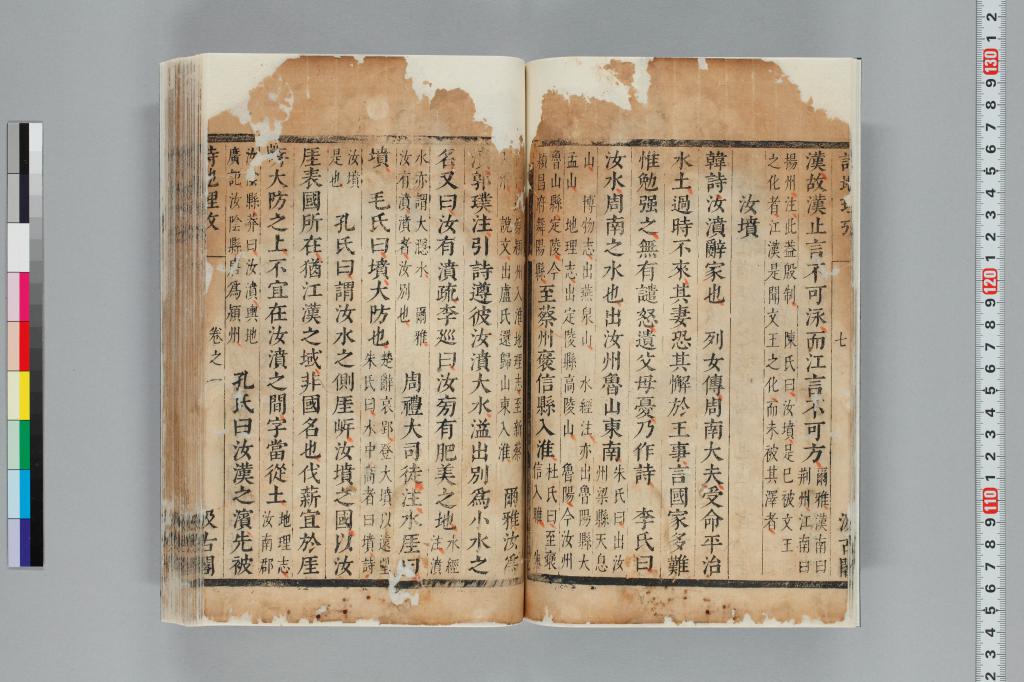 漢故漢止言不可泳而江言不可方爾雅漢南曰荆州江南曰
揚州注此蓋殷制 陳氏曰汝墳是已被文王
之化者江漢是聞文王之化而未被其澤者
汝墳
韓詩汝濆辭家也 列女傳周南大夫受命平治
水土過時不來其妻恐其懈於王事言國家多難
惟勉强之無有譴怒遺父母憂乃作詩 李氏曰
汝水周南之水也出汝州魯山東南朱氏曰出汝州梁縣天息
山 博物志出燕泉山 水經注亦出魯陽縣大
孟山 地理志出定陵縣高陵山 魯陽今汝州
魯山縣定陵今
潁昌府舞陽縣至蔡州褒信縣入淮杜氏曰至褒信入淮
州入淮地理志至新蔡
說文出盧氏還歸山東入淮 爾雅汝爲
郭璞注引詩遵彼汝濆大水溢出別爲小水之
名又曰汝有濆疏李廵曰汝旁有肥美之地水經注濆
水亦謂大㶏水 爾雅
汝有濆濆者汝別也 周禮大司徒注水厓曰
墳 毛氏曰墳大防也楚辭哀郢登大墳以遠望朱氏曰水中高者曰墳詩
汝墳
是也 孔氏曰謂汝水之側厓岸汝墳之國以汝
厓表國所在猶江漢之域非國名也伐薪宜於厓
大防之上不宜在汝濆之間字當從土地理志汝南郡
汝陰縣莽曰汝濆輿地
廣記汝陰縣唐爲潁州 孔氏曰汝漢之濱先被
詩地理攷
卷之一
汲古閣
七
汲古閣